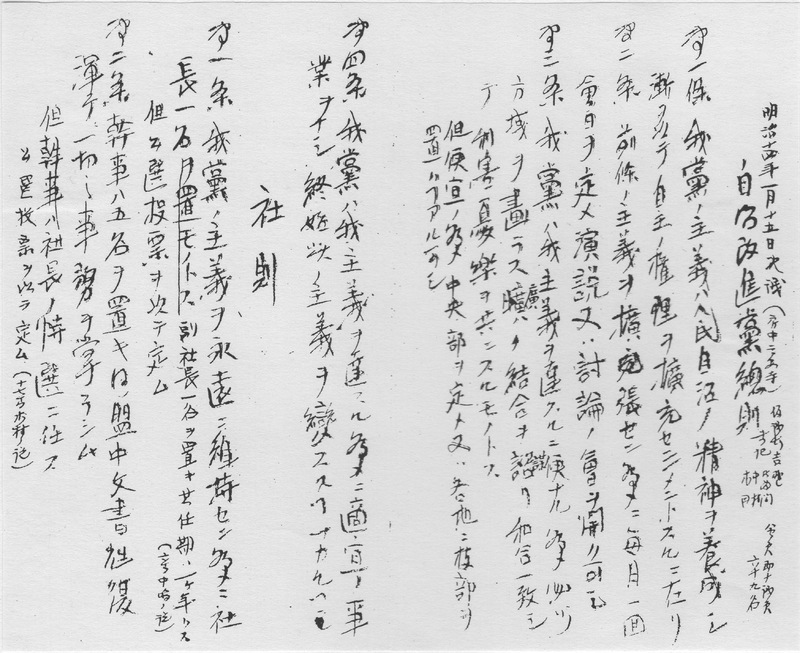 明治十四年一月十五日決議
自治改進黨總則
第一條 我黨ノ主義ハ人民自治ノ精神ヲ養成シ
漸ヲ以テ自主ノ權理ヲ擴充セシメントスルニ在リ
第二条 前條ノ主義ヲ擴充張セン爲メニ毎月一回
會日ヲ定メ演説又ハ討論ノ會ヲ開ク
第三条 我黨ハ我主義ヲ達スルニ便ナル爲メ
方域ヲ畫テス擴ク結合ヲ謀リ和合一致シ
テ利害憂樂ヲ共ニスルモノトス
但便宜ノ爲メ中央部ヲ定メ又ハ各地ニ枝部ヲ
置クヿアルヘシ
第四条 我黨ハ我主義ヲ達スル爲メニ適宜ノ事
業ヲナシ終始此ノ主義ヲ變スルヿナカルヘシ
社則
第一条 我黨ノ主義ヲ永遠ニ維持セン爲メニ社
長一名ヲ置モノトス 副社長一名ヲ置キ其任期ハ一ケ年トス
但公選投票ヲ以テ定ム
第二条 幹事ハ五名ヲ置キ同盟中文書往復
渾テ一切ノ事務ヲ掌ラシム
但幹事ハ社長ノ特選ニ任ス
公選投票ヲ以テ定ム